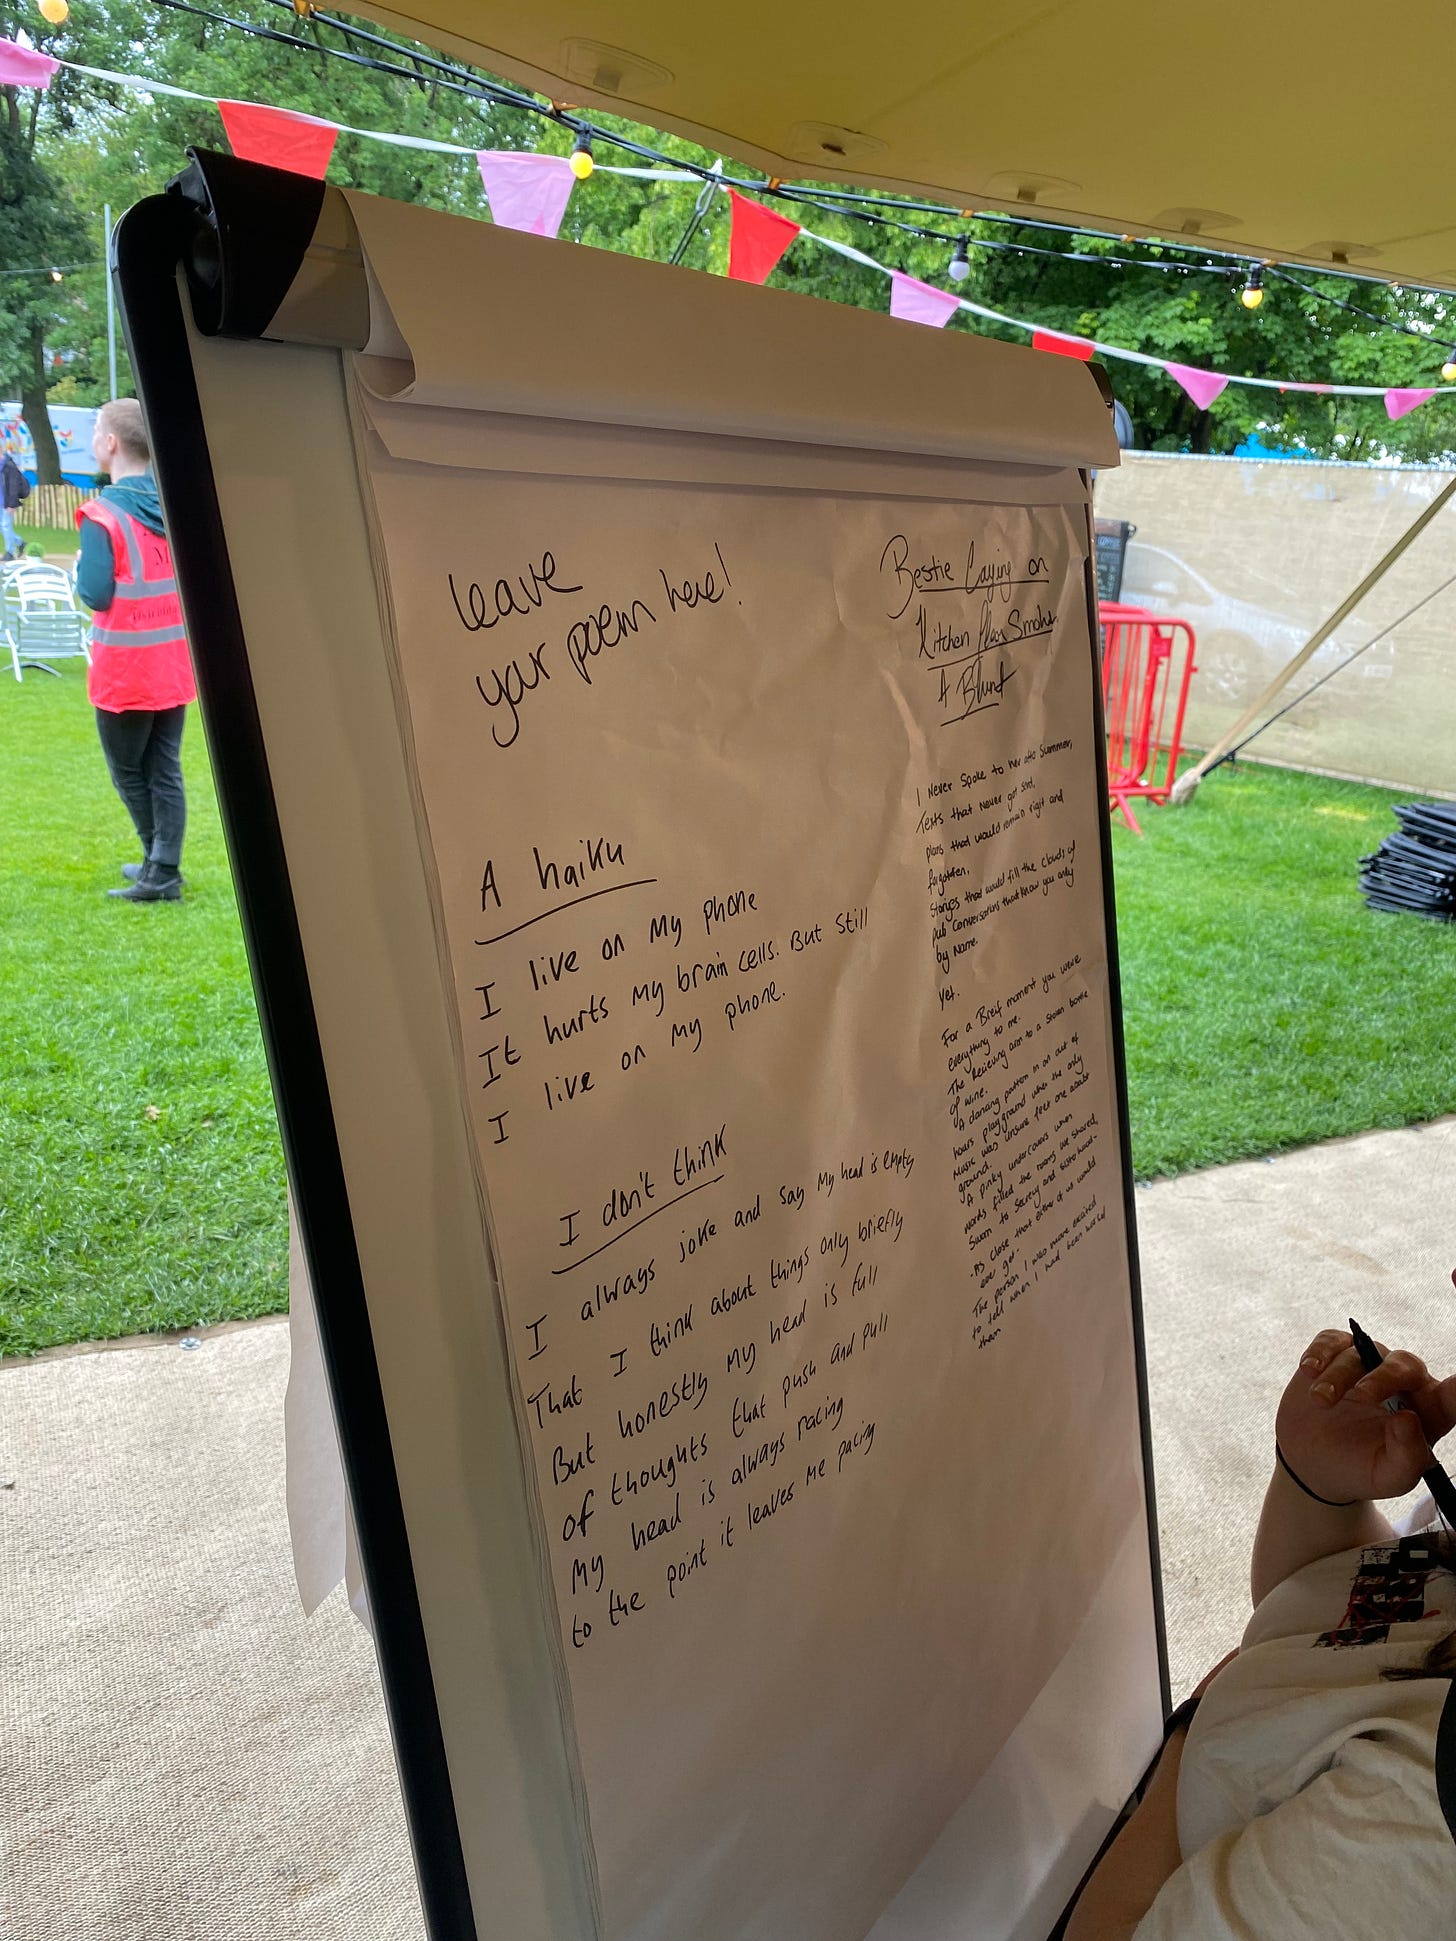 leave
your poem here!
A haiku
I live on my phone
It hurts my brain cells. But still
I live on my phone.
I don't think
I always joke and say my head is empty
That I think about things only briefly
But honestly my head is full
of thoughts that push and pull
My head is always racing
to the point it leaves me pacing
Bestie Laying on
Kitchen Floor Smoking
A Blunt
I Never Spoke to her after Summer,
Texts that never got sent,
plans that would remain right and
forgotten,
Stories that would fill the clouds of
pub conversations that know you only
by Name.
Yet.
For a Breif moment you were
everything to me.
The Relieving arm to a stolen bottle
of wine.
A dancing partner in an out of
hours playground when the only
Music was unsure feet one
ground.
A pinky undercovers when
words filled the rooms we shared,
Sworn to Secrecy and Sisterhood-
-As close that either of us would
ever get-
The person I was more excited
to tell when I had been
them